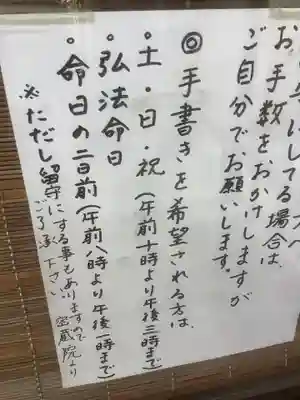 にしてる場合は
お手数をおかけしますが
ご自分でお願いします。
◎手書きを希望される方は、
・土・日・祝(午前十時より午後三時まで)
・弘法命日
・命日の二日前(午前八時より午後一時まで)
※ただし留守にする事もありますので
ご了承下さい 密蔵院より